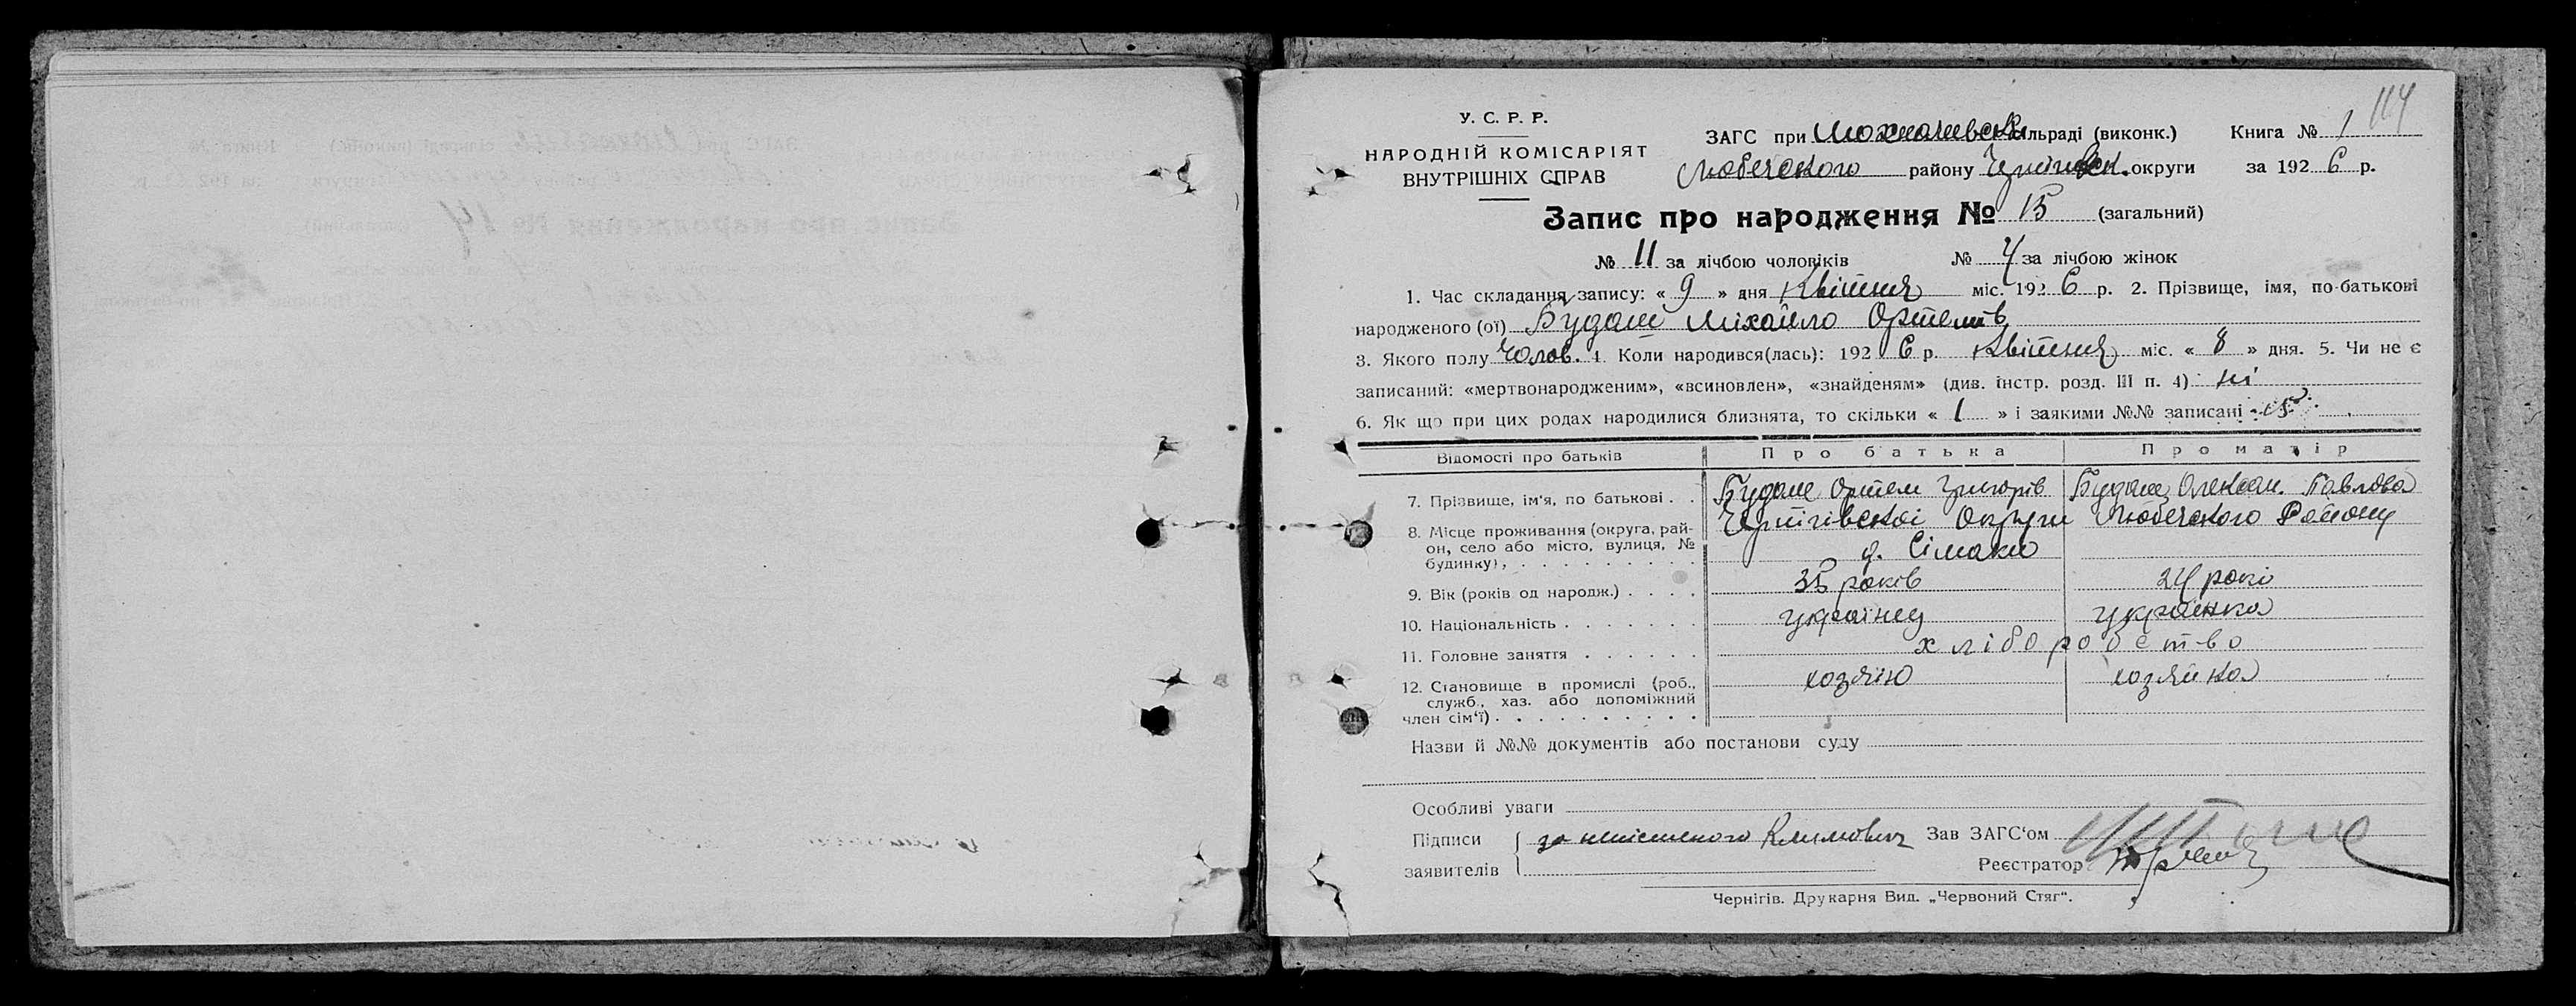 114
У. С. Р. Р.
НАРОДНІЙ КОМІСАРІЯТ
ВНУТРІШНІХ СПРАВ
ЗАГС при Мохначевськ сільраді (виконк.) Книга № 1
Любечского району Чернігівськ. округи за 1926 р.
Запис про народження № 15 (загальний)
№ 11 за лічбою чоловіків № 4 за лічбою жінок
1. Час складання запису: « 9 » дня Квітня міс. 1926 р. 2. Прізвище, імя, по-батькові
народженого (ої) Будаш Міхайло Ортемів
3. Якого полу Чолов. 4. Коли народився(лась): 1926 р. Квітня міс. « 8 » дня. 5. Чи не є
записаний: «мертвонародженим», «всиновлен», «знайденям» (див. інстр. розд. III п. 4) ні
6. Як що при цих родах народилися близнята, то скільки « 1 » і заякими №№ записані 15
Відомості про батьків Про батька Про матір
7. Прізвище, ім'я, по батькові . . Будаш Ортем Григорів Будаш Олексан. Павлова
8. Місце проживання (округа, рай- Чернігівскоі Округи Любечского Району
он, село або місто, вулиця, № д. Сімаки
будинку), . . . . . . . . . .
9. Вік (років од народж.) . . . . 35 років 24 рокі
10. Національність . . . . . . . українец українка
11. Головне заняття . . . . . . хліборобство
12. Становище в промислі (роб., хозяїн хозяйка
служб., хаз. або допоміжний
член сім'ї) . . . . . . . . . .
Назви й №№ документів або постанови суду
Особливі уваги
Підписи за Климович Зав ЗАГС'ом
заявителів Реєстратор
Чернігів. Друкарня Вид. „Червоний Стяг".